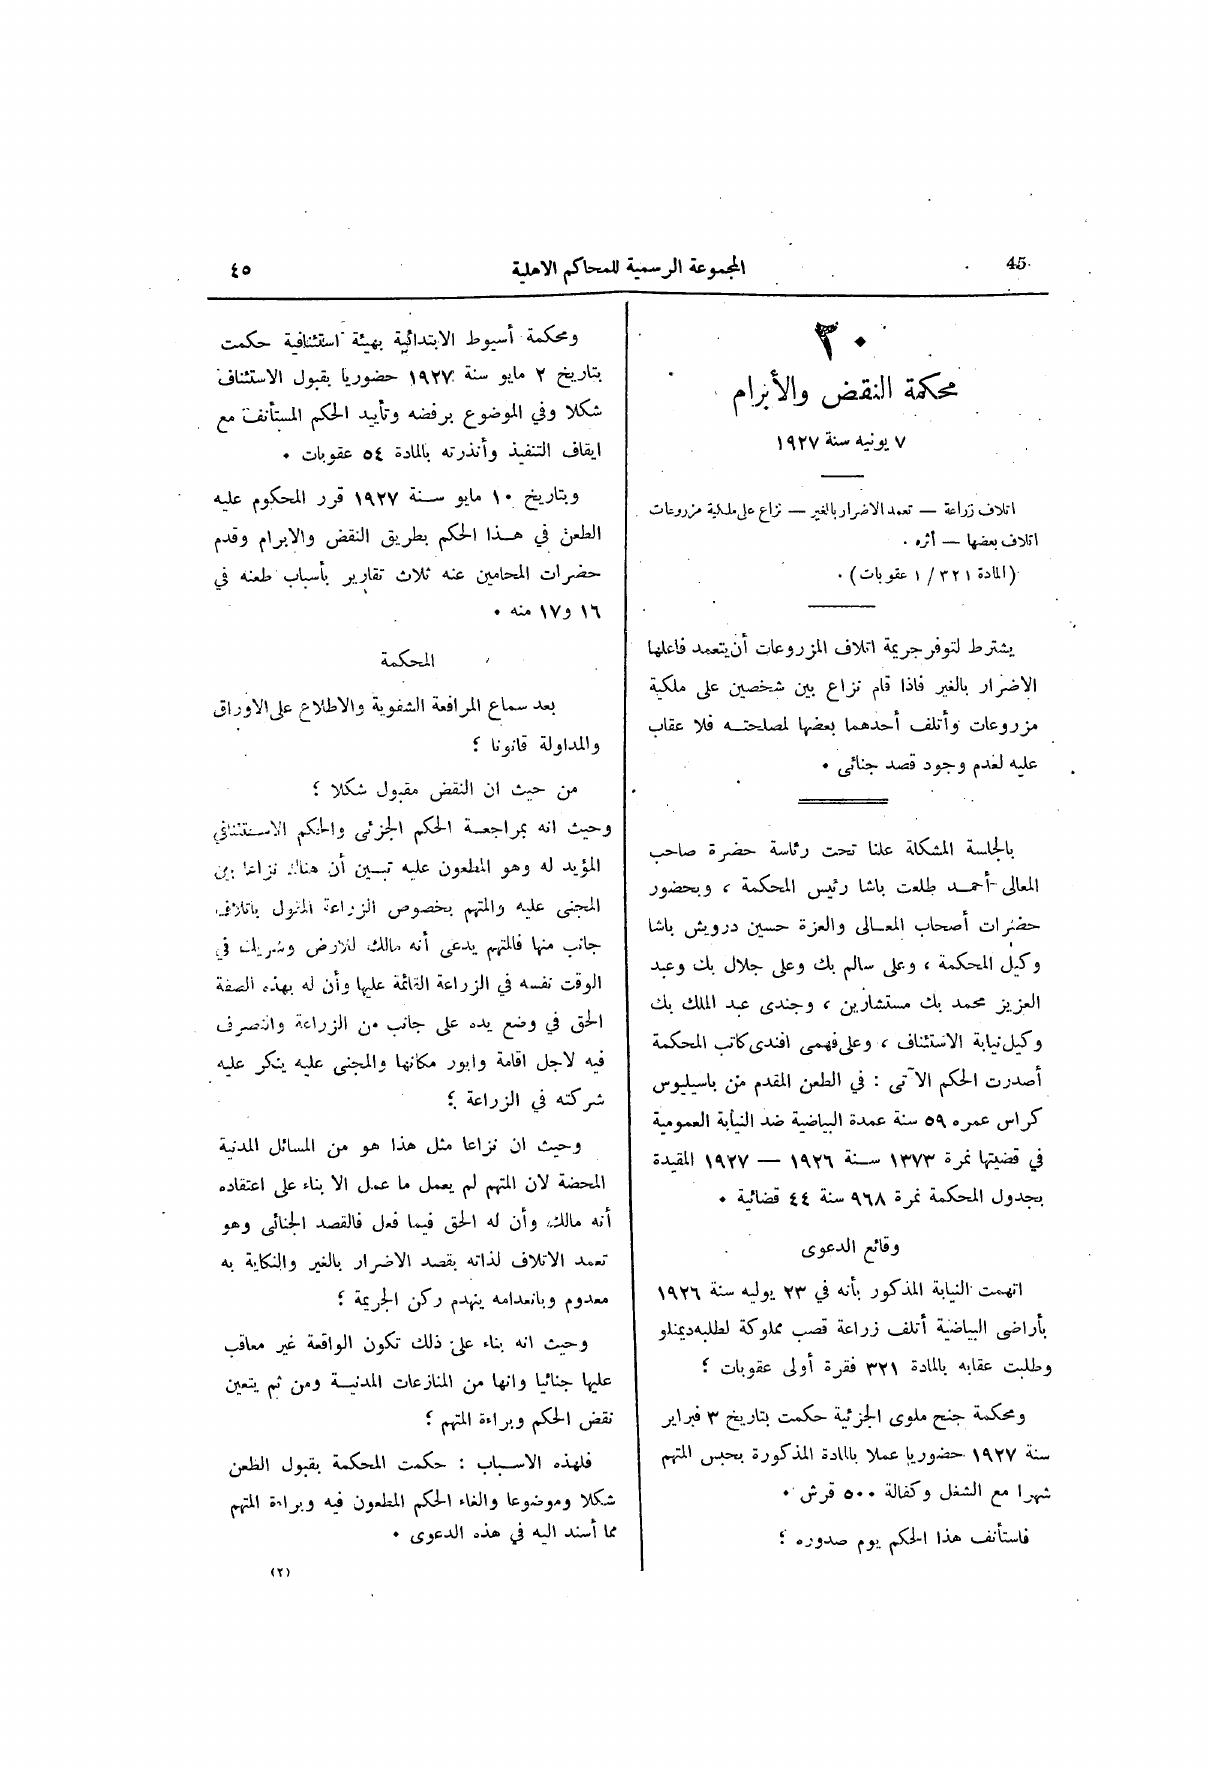 45
المجموعة الرسمية للمحاكم الاهلية
٤٥
٣٠
محكمة النقض والأبرام
٧ يونيه سنة ١٩٢٧
اتلاف زراعة — تعمد الاضرار بالغير — نزاع على ملكية مزروعات
اتلاف بعضها — أثره .
(المادة ٣٢١ / ١ عقوبات) .
يشترط لتوفر جريمة اتلاف المزروعات أن يتعمد فاعلها
الاضرار بالغير فاذا قام نزاع بين شخصين على ملكية
مزروعات وأتلف أحدهما بعضها لمصلحته فلا عقاب
عليه لعدم وجود قصد جنائى .
بالجلسة المشكلة علنا تحت رئاسة حضرة صاحب
المعالى أحمد طلعت باشا رئيس المحكمة ، وبحضور
حضرات أصحاب المعالى والعزة حسين درويش باشا
وكيل المحكمة ، وعلى سالم بك وعلى جلال بك وعبد
العزيز محمد بك مستشارين ، وجندى عبد الملك بك
وكيل نيابة الاستئناف ، وعلى فهمى افندى كاتب المحكمة
أصدرت الحكم الآتى : في الطعن المقدم من باسيليوس
كراس عمره ٥٩ سنة عمدة البياضية ضد النيابة العمومية
في قضيتها نمرة ١٣٧٣ سنة ١٩٢٦ — ١٩٢٧ المقيدة
بجدول المحكمة نمرة ٩٦٨ سنة ٤٤ قضائية .
وقائع الدعوى
اتهمت النيابة المذكور بأنه في ٢٣ يوليه سنة ١٩٢٦
بأراضى البياضية أتلف زراعة قصب مملوكة لطلبه ديمنلو
وطلبت عقابه بالمادة ٣٢١ فقرة أولى عقوبات ؛
ومحكمة جنح ملوى الجزئية حكمت بتاريخ ٣ فبراير
سنة ١٩٢٧ حضوريا عملا بالمادة المذكورة بحبس المتهم
شهرا مع الشغل وكفالة ٥٠٠ قرش .
فاستأنف هذا الحكم يوم صدوره ؛
ومحكمة أسيوط الابتدائية بهيئة استئنافية حكمت
بتاريخ ٢ مايو سنة ١٩٢٧ حضوريا بقبول الاستئناف
شكلا وفي الموضوع برفضه وتأييد الحكم المستأنف مع
ايقاف التنفيذ وأنذرته بالمادة ٥٤ عقوبات .
وبتاريخ ١٠ مايو سنة ١٩٢٧ قرر المحكوم عليه
الطعن في هذا الحكم بطريق النقض والابرام وقدم
حضرات المحامين عنه ثلاث تقارير بأسباب طعنه في
١٦ و١٧ منه .
المحكمة
بعد سماع المرافعة الشفوية والاطلاع على الأوراق
والمداولة قانونا ؛
من حيث ان النقض مقبول شكلا ؛
وحيث انه بمراجعة الحكم الجزئى والحكم الاستئنافي
المؤيد له وهو المطعون عليه تبين أن هناك نزاعا بين
المجنى عليه والمتهم بخصوص الزراعة المقول باتلاف
جانب منها فالمتهم يدعى أنه مالك للارض وشريك في
الوقت نفسه في الزراعة القائمة عليها وأن له بهذه الصفة
الحق في وضع يده على جانب من الزراعة والتصرف
فيه لاجل اقامة وابور مكانها والمجنى عليه ينكر عليه
شركته في الزراعة ؛
وحيث ان نزاعا مثل هذا هو من المسائل المدنية
المحضة لان المتهم لم يعمل ما عمل الا بناء على اعتقاده
أنه مالك وأن له الحق فيما فعل فالقصد الجنائى وهو
تعمد الاتلاف لذاته بقصد الاضرار بالغير والنكاية به
معدوم وبانعدامه ينهدم ركن الجريمة ؛
وحيث انه بناء على ذلك تكون الواقعة غير معاقب
عليها جنائيا وانها من المنازعات المدنية ومن ثم يتعين
نقض الحكم وبراءة المتهم ؛
فلهذه الاسباب : حكمت المحكمة بقبول الطعن
شكلا وموضوعا والغاء الحكم المطعون فيه وبراءة المتهم
مما أسند اليه في هذه الدعوى .
(٢)